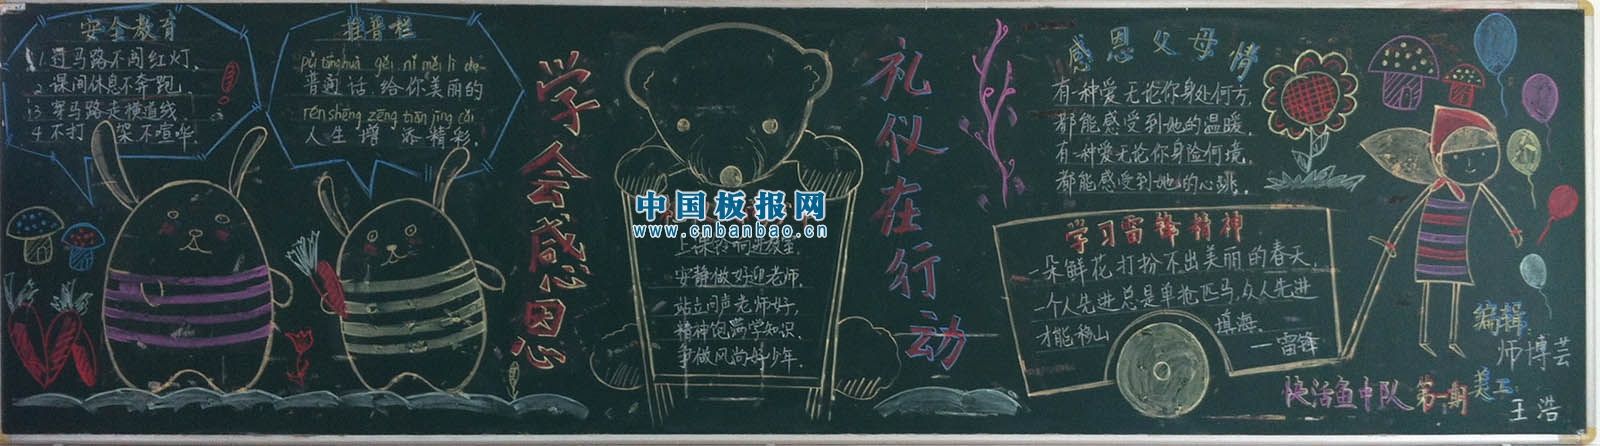 安全教育
1.过马路不闯红灯,
2.课间休息不奔跑,
3.穿马路走横道线
4.不打 架不喧哗.
推普栏
pǔ tōnghuà gěi nǐ měi lì de
普通话,给你美丽的
rén shēng zēng tiān jīng cǎi
人生增添精彩.
学会感恩
中国板报网
www.cnbanbao.cn
上课铃响进教室
安静做好迎老师,
站立问声老师好,
精神饱满学知识
争做风尚好少年.
礼仪在行动
感恩父母情
有一种爱无论你身处何方,
都能感受到她的温暖,
有一种爱无论你身险何境,
都能感受到她的心跳.
学习雷锋精神
一朵鲜花打扮不出美丽的春天,
一个人先进总是单枪匹马,众人先进
才能移山 填海.
一雷锋
快活鱼中队 第一期
编辑
师博芸
美工
王浩